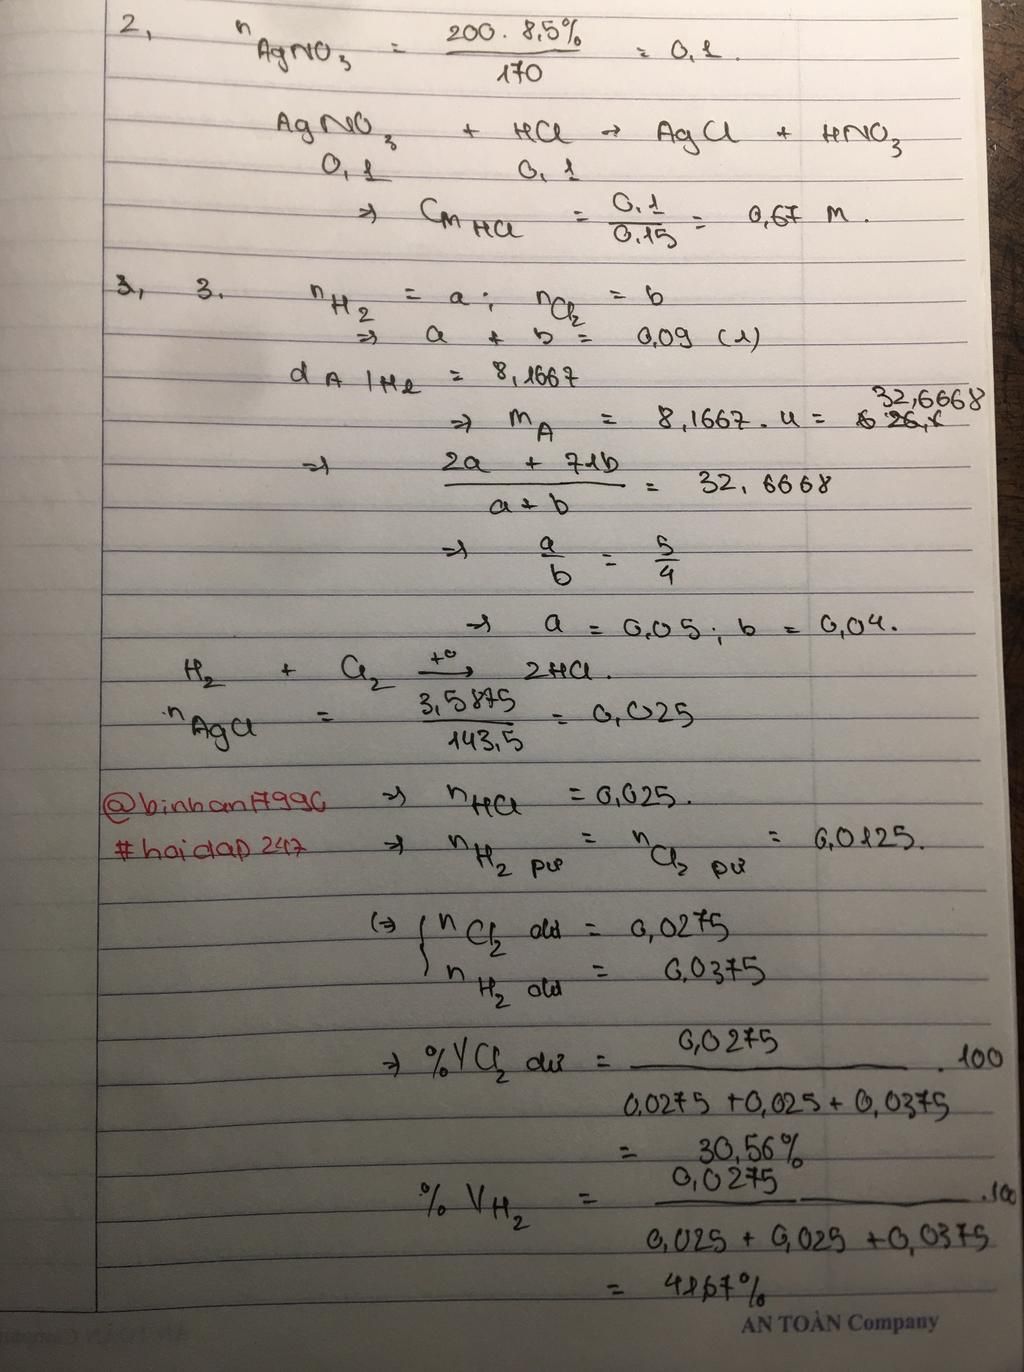 2, nAgNO3 = 200 . 8,5% / 170 = 0,1 .
AgNO3 + HCl → AgCl + HNO3
0,1 0,1
=> CM HCl = 0,1 / 0,15 = 0,67 M .
3, 3. nH2 = a ; nCl2 = b
=> a + b = 0,09 (1)
d A / He = 8,1667
=> MA = 8,1667 . 4 = 32,6668
=> 2a + 71b / a + b = 32,6668
=> a / b = 5 / 4
=> a = 0,05 ; b = 0,04.
H2 + Cl2 t° → 2HCl .
nAgCl = 3,5875 / 143,5 = 0,025
@binhan1799G => nHCl = 0,025.
#hoidap247 => nH2 pư = nCl2 pư = 0,0125.
(=> { nCl2 dư = 0,0275
nH2 dư = 0,0375
=> %VCl2 dư = 0,0275 / 0,0275 + 0,025 + 0,0375 . 100
= 30,56%
% VH2 = 0,0275 / 0,025 + 0,025 + 0,0375 .100
= 41,67%
AN TOÀN Company